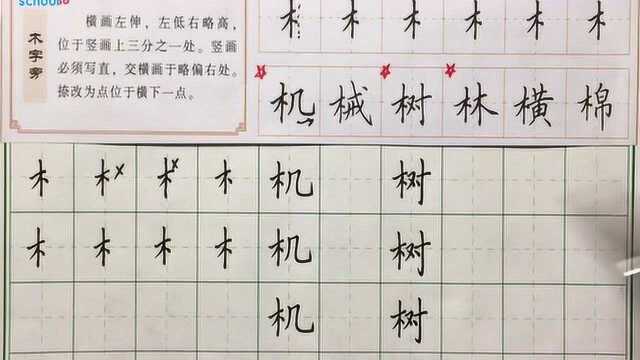 SCHOOL
木字旁
横画左伸，左低右略高，
位于竖画上三分之一处。竖画
必须写直，交横画于略偏右处。
捺改为点位于横下一点。
木 木 木 木 木 木
机 械 树 林 横 棉
木 木 木 木 机 树
木 木 木 木 机 树
机 树